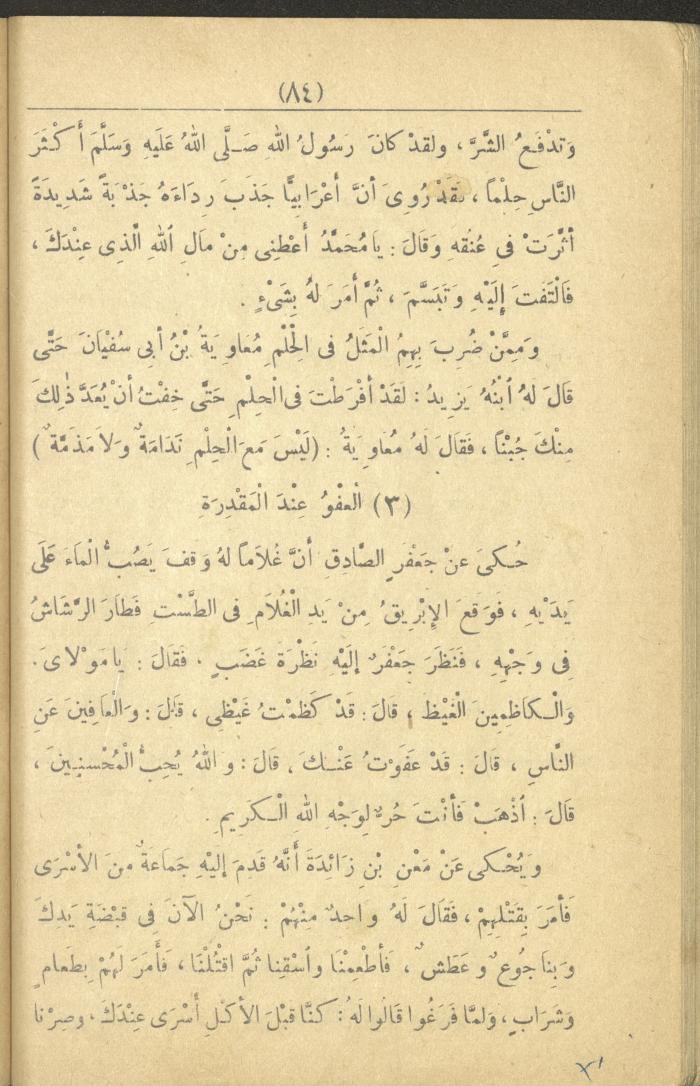 (٨٤)
وَتَدْفَعُ الشَّرَّ ، ولقدْ كانَ رَسُولُ اللهِ صَلَّى اللهُ عَلَيهِ وَسَلَّمَ أَكْثَرَ
النَّاسِ حِلْماً ، فقَدْ رُوِىَ أنَّ أعْرَابيًّا جَذَبَ رِدَاءَهُ جَذْبَةً شَدِيدَةً
أثَّرتْ فى عُنقهِ وَقالَ : يا مُحَمَّدُ أعْطِنِى مِنْ مَالِ اللهِ الَّذِى عِنْدَكَ ،
فَالْتَفتَ إِلَيْهِ وَتَبَسَّمَ ، ثُمَّ أَمَرَ لهُ بِشَىْءٍ .
وَمِمَّنْ ضُرِبَ بِهِمُ الْمَثَلُ فى الْحِلْمِ مُعَاوِيَةُ بْنُ أبى سُفْيَانَ حَتَّى
قالَ لهُ ابْنُهُ يَزِيدُ : لَقَدْ أَفْرَطْتَ فى الْحِلْمِ حَتَّى خِفْتُ أنْ يُعَدَّ ذٰلِكَ
مِنْكَ جُبْنًا ، فَقَالَ لَهُ مُعَاوِيَةُ : (لَيْسَ مَعَ الْحِلْمِ نَدَامَةٌ وَلاَ مَذَمَّةٌ)
(٣) الْعفْوُ عِنْدَ الْمَقْدِرَةِ
حُكىَ عنْ جَعْفَرٍ الصَّادِقِ أنَّ غُلاَماً لهُ وَقفَ يَصُبُّ الْمَاءَ عَلَى
يَدَيْهِ ، فَوَقَعَ الإِبْرِيقُ مِنْ يَدِ الْغُلاَمِ فى الطَّسْتِ فَطَارَ الرَّشَاشُ
فِى وَجْهِهِ ، فَنَظَرَ جَعْفَرٌ إِلَيْهِ نَظْرَةَ غَضَبٍ . فَقَالَ : يا مَوْلاىَ .
وَالْكاظِمِينَ الْغَيْظَ ، قالَ : قَدْ كَظَمْتُ غَيْظِى ، قَالَ : وَالعَافِينَ عَنِ
النَّاسِ ، قالَ : قَدْ عَفَوْتُ عَنْكَ . قالَ : وَاللهُ يُحِبُّ الْمُحْسنِينَ ،
قالَ : اذْهَبْ فَأَنْتَ حُرٌّ لِوَجْهِ اللهِ الْكَرِيمِ .
وَيُحْكى عَنْ مَعْنِ بْنِ زَائِدَةَ أَنَّهُ قَدِمَ إِليْهِ جَمَاعَةٌ منَ الأَسْرَى
فَأَمَرَ بِقَتْلِهِمْ ، فَقَالَ لَهُ وَاحدٌ مِنْهُمْ : نَحْنُ الآنَ فى قَبْضَةِ يَدِكَ
وَبِنَا جُوعٌ وَعَطَشٌ ، فَأَطْعِمْنَا وَاسْقِنا ثُمَّ اقْتُلْنَا ، فَأَمَرَ لَهُمْ بِطَعامٍ
وَشَرَابٍ ، وَلمَّا فَرَغُوا قَالُوا لَهُ : كنَّا قبْلَ الأَكلِ أَسْرَى عِنْدَكَ . وَصِرْنا